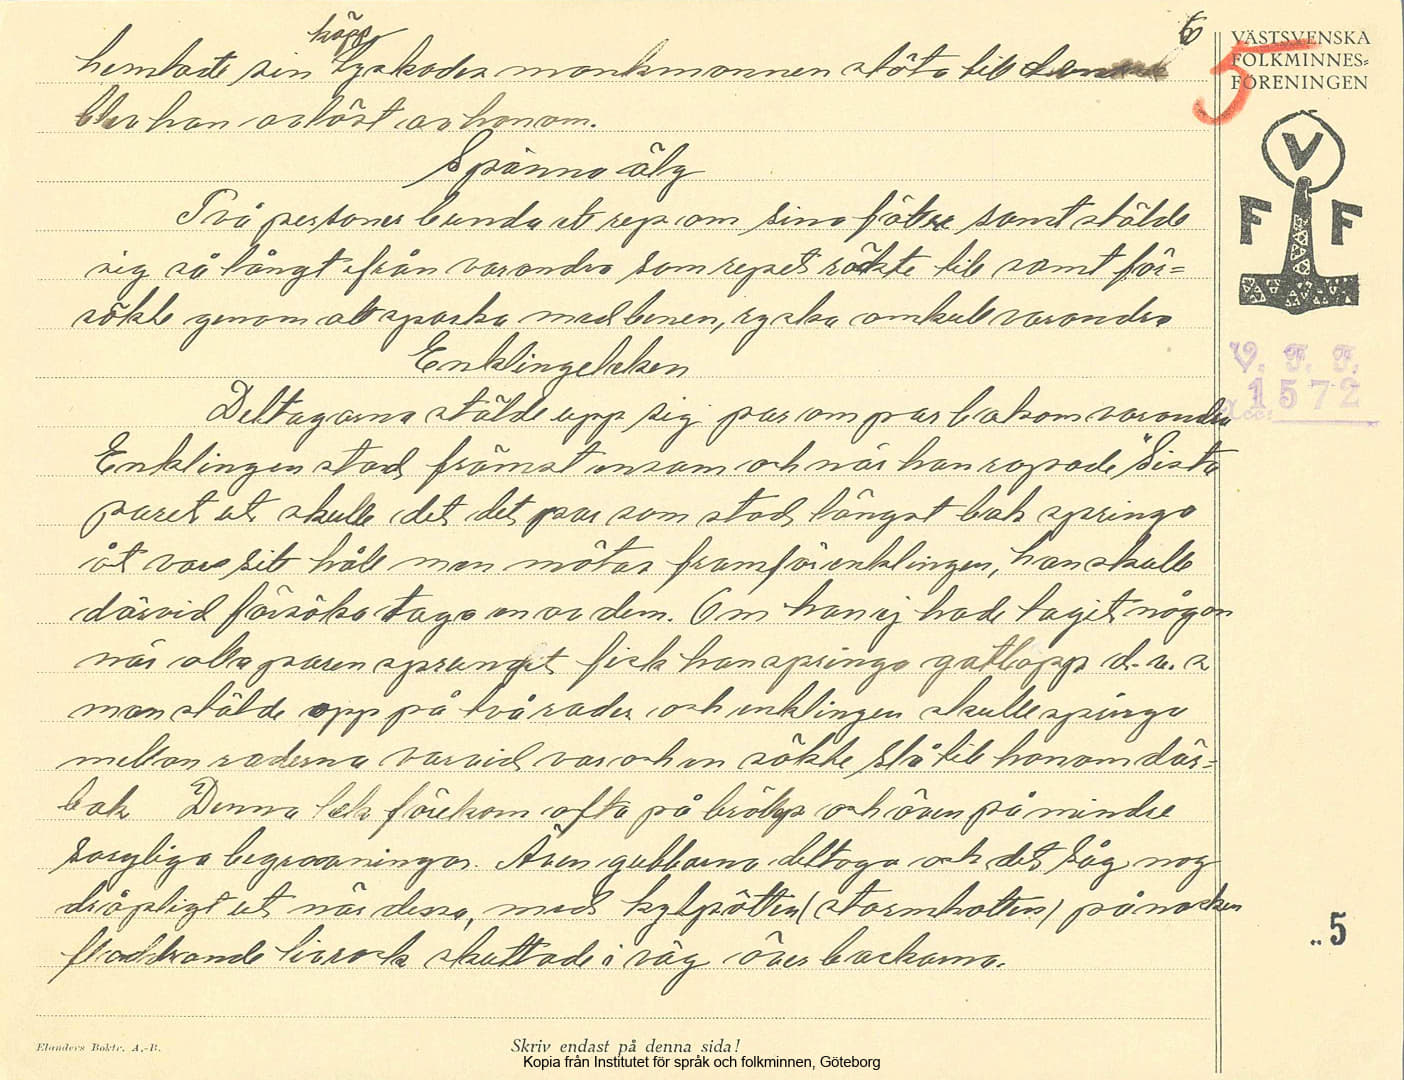 6
käpp
hemtade sin lyckades monkmannen stöta till denna
blev han avlöst av honom.
Spänna älg
Två personer bundu et rep om sina fötter samt stälde
sig så långt ifrån varandra som repet räkte till samt för=
sökte genom att sparka med benen, rycka omkull varandra
Enklingeleken
Deltagarna stälde upp sig par om par bakom varandra
Enklingen stod främst ensam och när han ropade "Sista
paret ut skulle det det par som stod längst bak springa
åt var sit håll men mötas framför enklingen, han skulle
därvid försöka taga en av dem. Om han ej hade tagit någon
när alla paren sprungit fick han springa gatlopp d. v. s
man stälde opp på två rader och enklingen skulle springa
mellan raderna varvid var och en sökte slå till honom där=
bak Denna lek förekom ofta på bröllop och även på mindre
sorgliga begravningar. Även gubbarna deltoga och det såg nog
dråpligt ut när dessa, med kylpötten (stormhatten) på nacken
fladdrande livrock skuttade i väg över backarna.
VÄSTSVENSKA
FOLKMINNES=
FÖRENINGEN
5
V
F F
V. F. F.
Acc: 1572
.. 5
Elanders Boktr. A.-B.
Skriv endast på denna sida!
Kopia från Institutet för språk och folkminnen, Göteborg